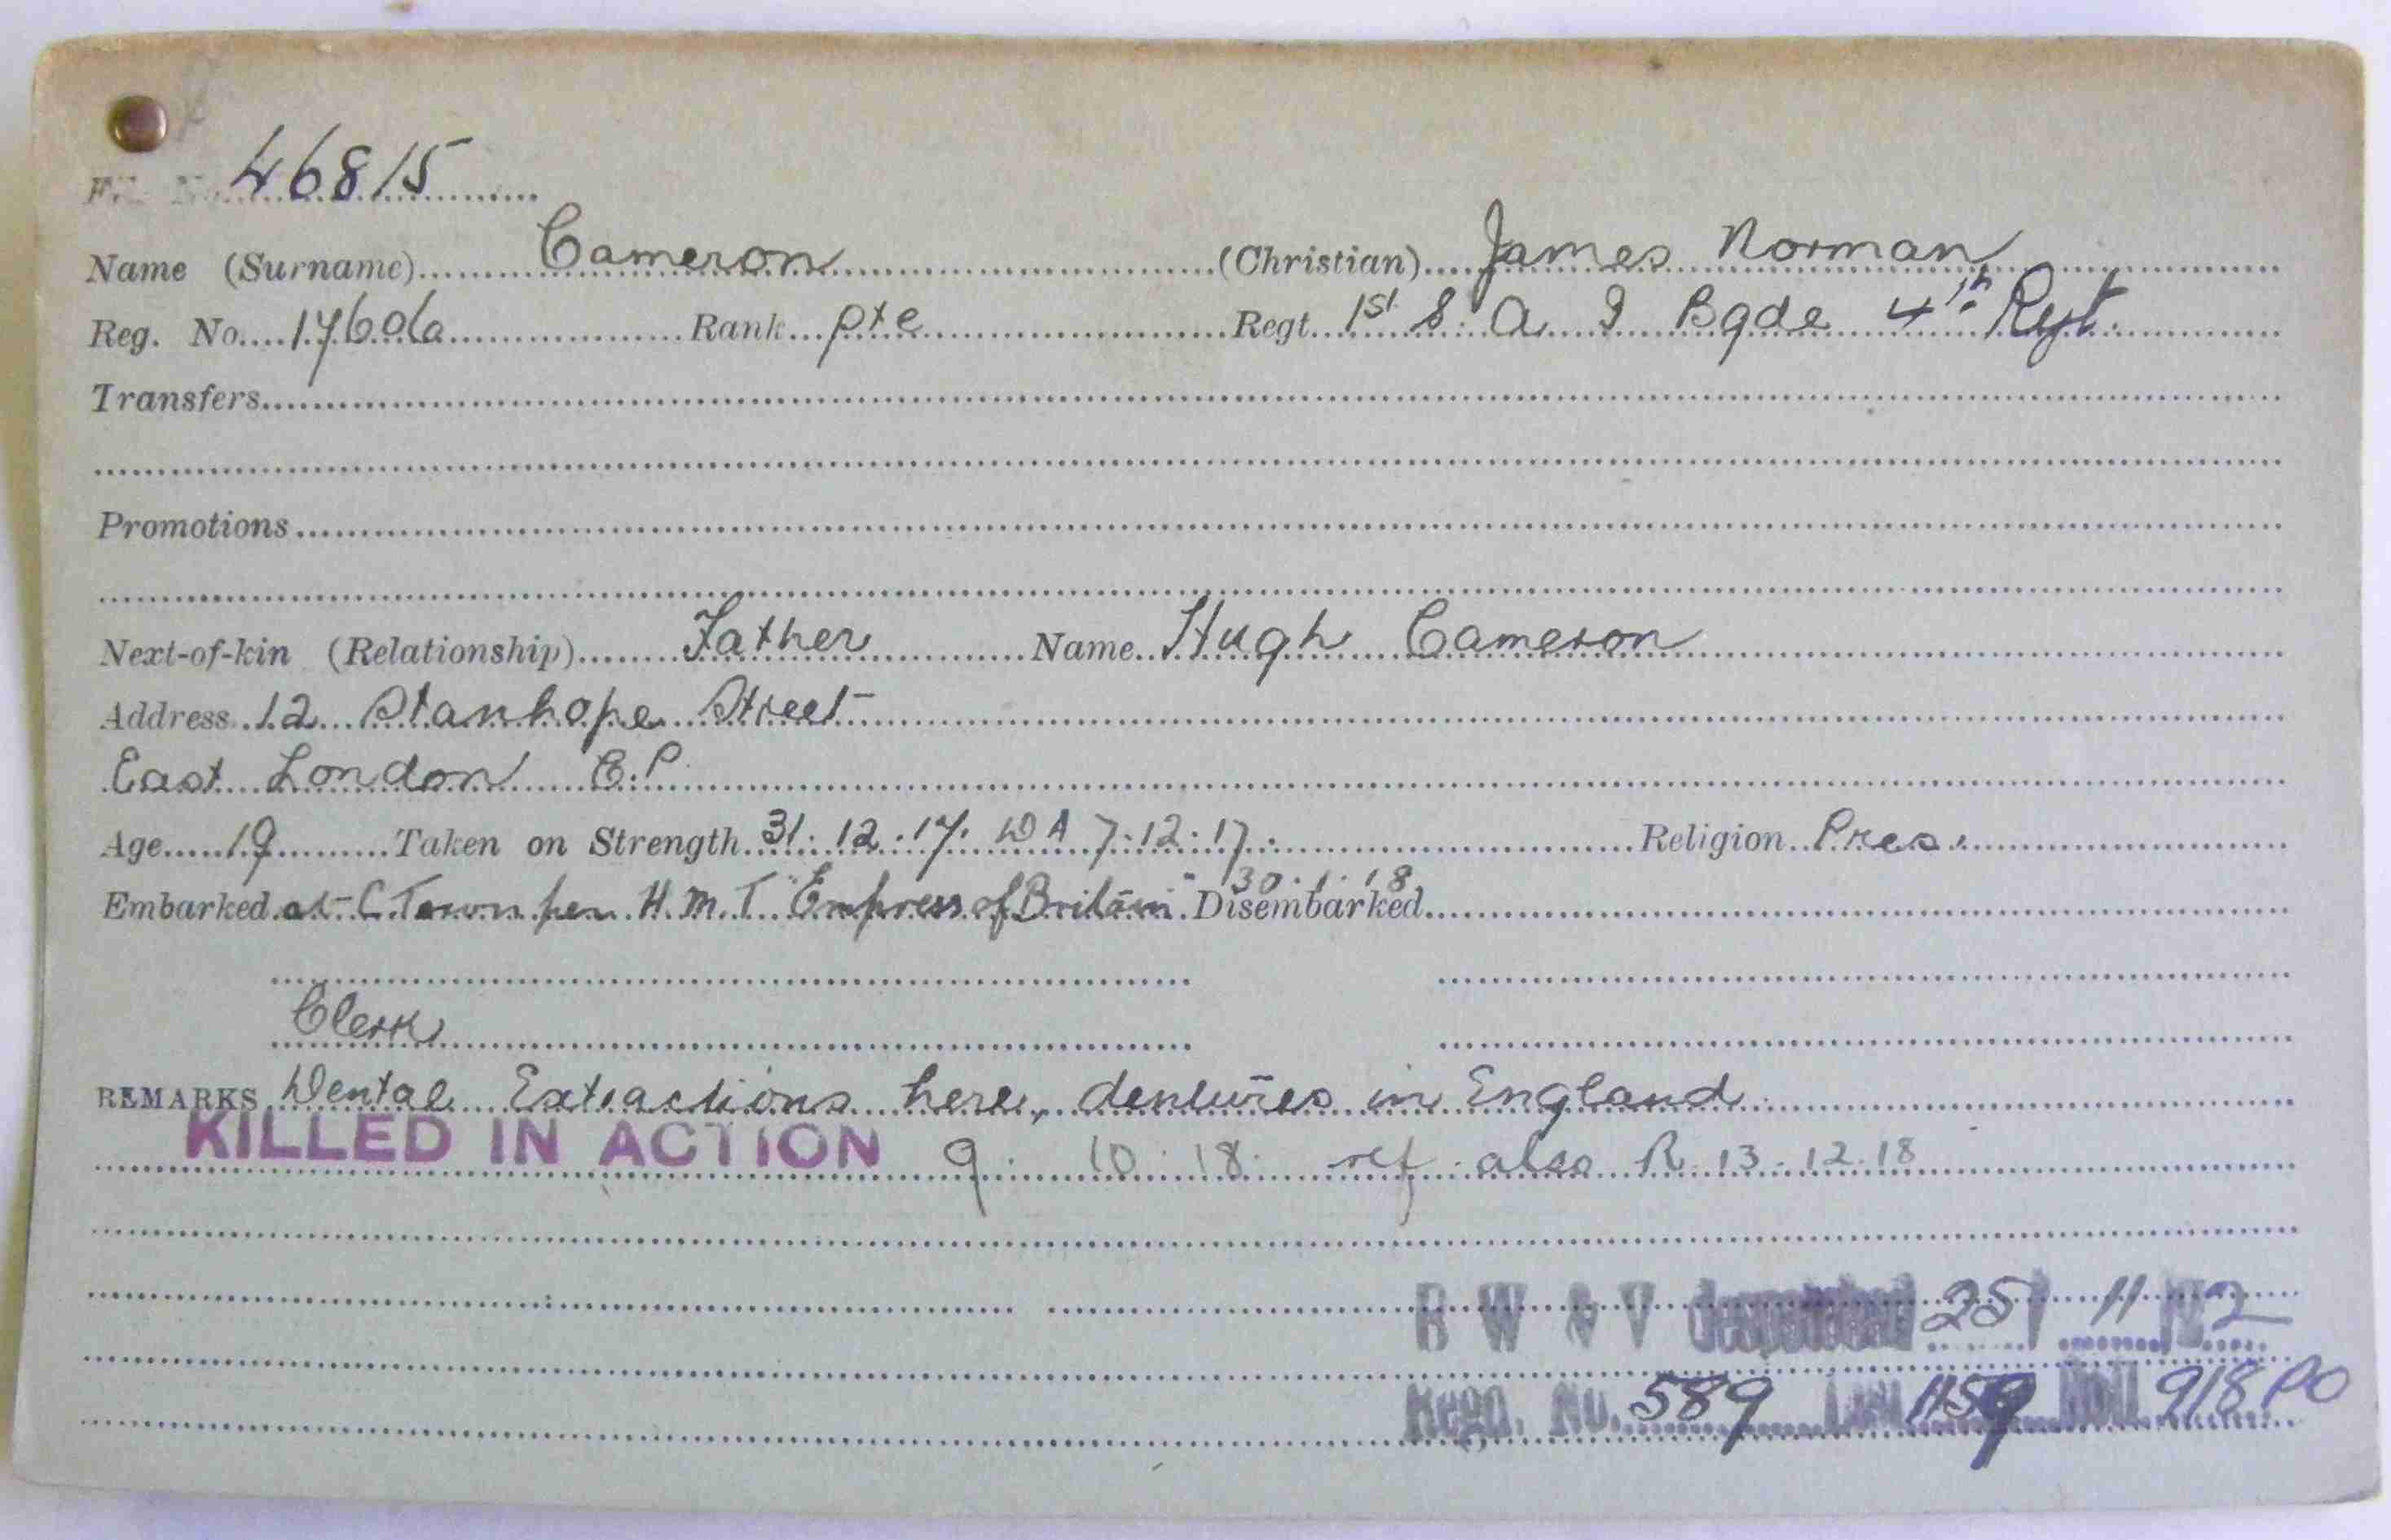 46815
Name (Surname) Cameron (Christian) James Norman
Reg. No. Rank pte Regt. 1st S. A I Bgde 4th Regt.
Transfers
Promotions
Next-of-kin (Relationship) Father Name Hugh Cameron
Address 12 Stanhope Street
East London C.P.
Age 19 Taken on Strength 31.12.17. DA 7.12.17. Religion Pres.
Embarked at C Town per H.M.T. "Empress of Britain" 30.1.18 Disembarked
Clerk
REMARKS Dental Extractions here, dentures in England
KILLED IN ACTION 9. 10. 18. ref. also R. 13.12.18
B W & V despatched 25/ 11 2
Regd. No. 589 1159 Roll 918 PO